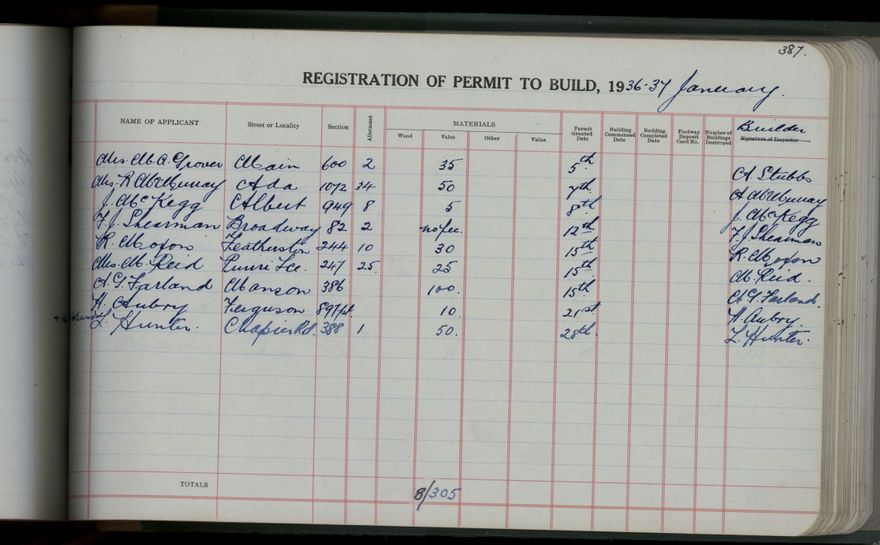 387.
REGISTRATION OF PERMIT TO BUILD, 1936-37 January.
NAME OF APPLICANT Street or Locality Section Allotment MATERIALS Wood Value Other Value Permit Granted Date Building Commenced Date Building Completed Date Footway Deposit Card No. Number of Buildings Destroyed Builder Signature of Inspector
Mrs. M. A. Grover Main 600 2 35 5th A Stubbs
Mrs. R McMurray Ada 1072 34 50 7th A McMurray
J. McKegg Albert 949 8 5 8th J. McKegg
F. J. Shearman Broadway 82 2 no fee. 12th F. J. Shearman
R. Moxon Featherston 244 10 30 15th R. Moxon
Mrs. M. Reid Puriri Tce. 247 25 25 15th M. Reid.
A. G. Farland Manson 386 100. 15th A G Farland.
H. Aubry Ferguson 10. 21st H. Aubry.
L. Hunter. Napier Rd. 388 1 50. 28th L. Hunter.
TOTALS 8/305